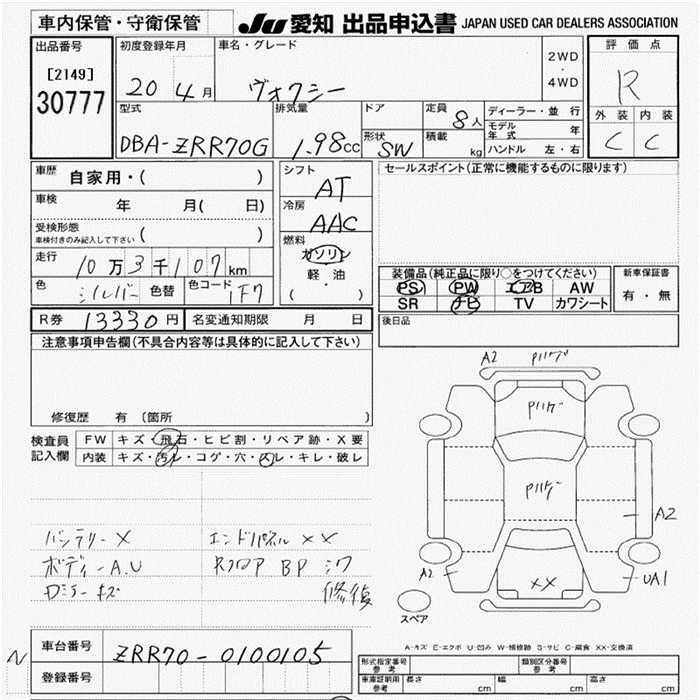 車内保管・守衛保管 JU 愛知 出品申込書 JAPAN USED CAR DEALERS ASSOCIATION
出品番号 [2149] 30777
初度登録年月 20 4月
車名・グレード ヴォクシー
2WD・4WD
評価点 R
外装 C 内装 C
型式 DBA-ZRR70G
排気量 1.98cc
ドア
形状 SW
定員 8人
積載 kg
ディーラー・並行
モデル年式 年
ハンドル 左・右
車歴 自家用・( )
車検 年 月( 日)
受検形態 車検付きのみ記入して下さい ( )
走行 10万3千107km
色 シルバー 色替 色コード 1F7
シフト AT
冷房 AAC
燃料 ガソリン 軽・油 ( ・ )
セールスポイント(正常に機能するものに限ります)
装備品(純正品に限り○をつけてください)
PS PW エアB AW
SR ナビ TV カワシート
新車保証書 有・無
R券 13330円 名変通知期限 月 日
後日品
注意事項申告欄(不具合内容等は具体的に記入して下さい)
修復歴 有 〔箇所 〕
検査員記入欄
FW キズ・飛石・ヒビ割・リペア跡・X要
内装 キズ・汚レ・コゲ・穴・スレ・キレ・破レ
バッテリーX エンドパネル XX
ボディーA.U Rフロア BP シワ
ロミラーキズ 修復
A2
A2
A2
UA1
XX
スペア
A-キズ E-エクボ U-凹み W-補修跡 S-サビ C-腐食 XX-交換済
N 車台番号 ZRR70-0100105
登録番号
形式指定番号 参考 類別区分番号 参考
車庫証明用 参考 長さ cm 幅 cm 高さ cm